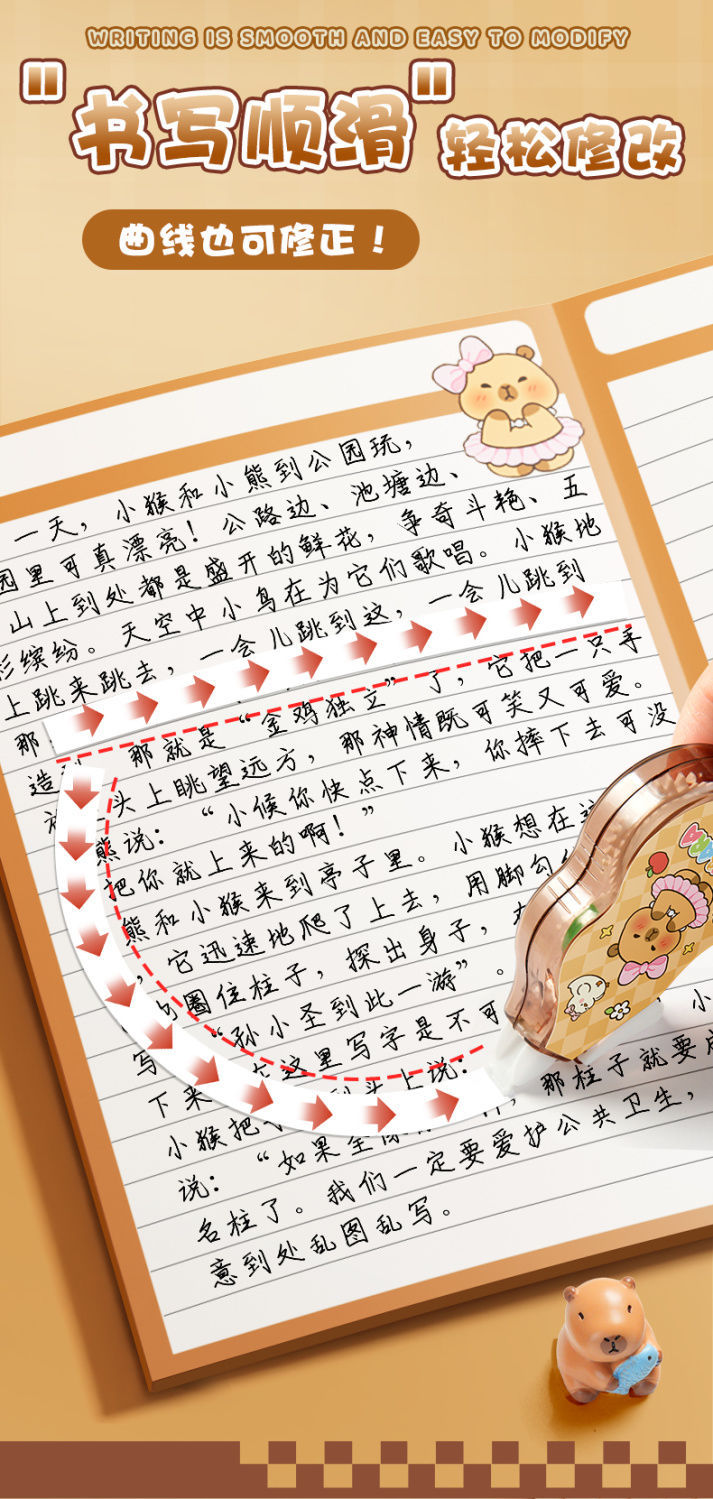 WRITING IS SMOOTH AND EASY TO MODIFY
"书写顺滑" 轻松修改
曲线也可修正！
一天，小猴和小熊到公园玩，
园里可真漂亮！公路边、池塘边、
山上到处都是盛开的鲜花，争奇斗艳、五
彩缤纷。天空中小鸟在为它们歌唱。小猴地
上跳来跳去，一会儿跳到这，一会儿跳到
那
那就是“金鸡独立”了，它把一只手
造
头上眺望远方，那神情既可笑又可爱。
熊说：“小候你快点下来，你摔下去可没
把你就上来的啊！”
熊和小猴来到亭子里。小猴想在这
，它迅速地爬了上去，用脚勾
圈住柱子，探出身子，
写“孙小圣到此一游”。
下来 在这里写字是不可 ，小
小猴把 头上说：
说：“如果 ，那柱子就要成
名柱了。我们一定要爱护公共卫生，
意到处乱图乱写。